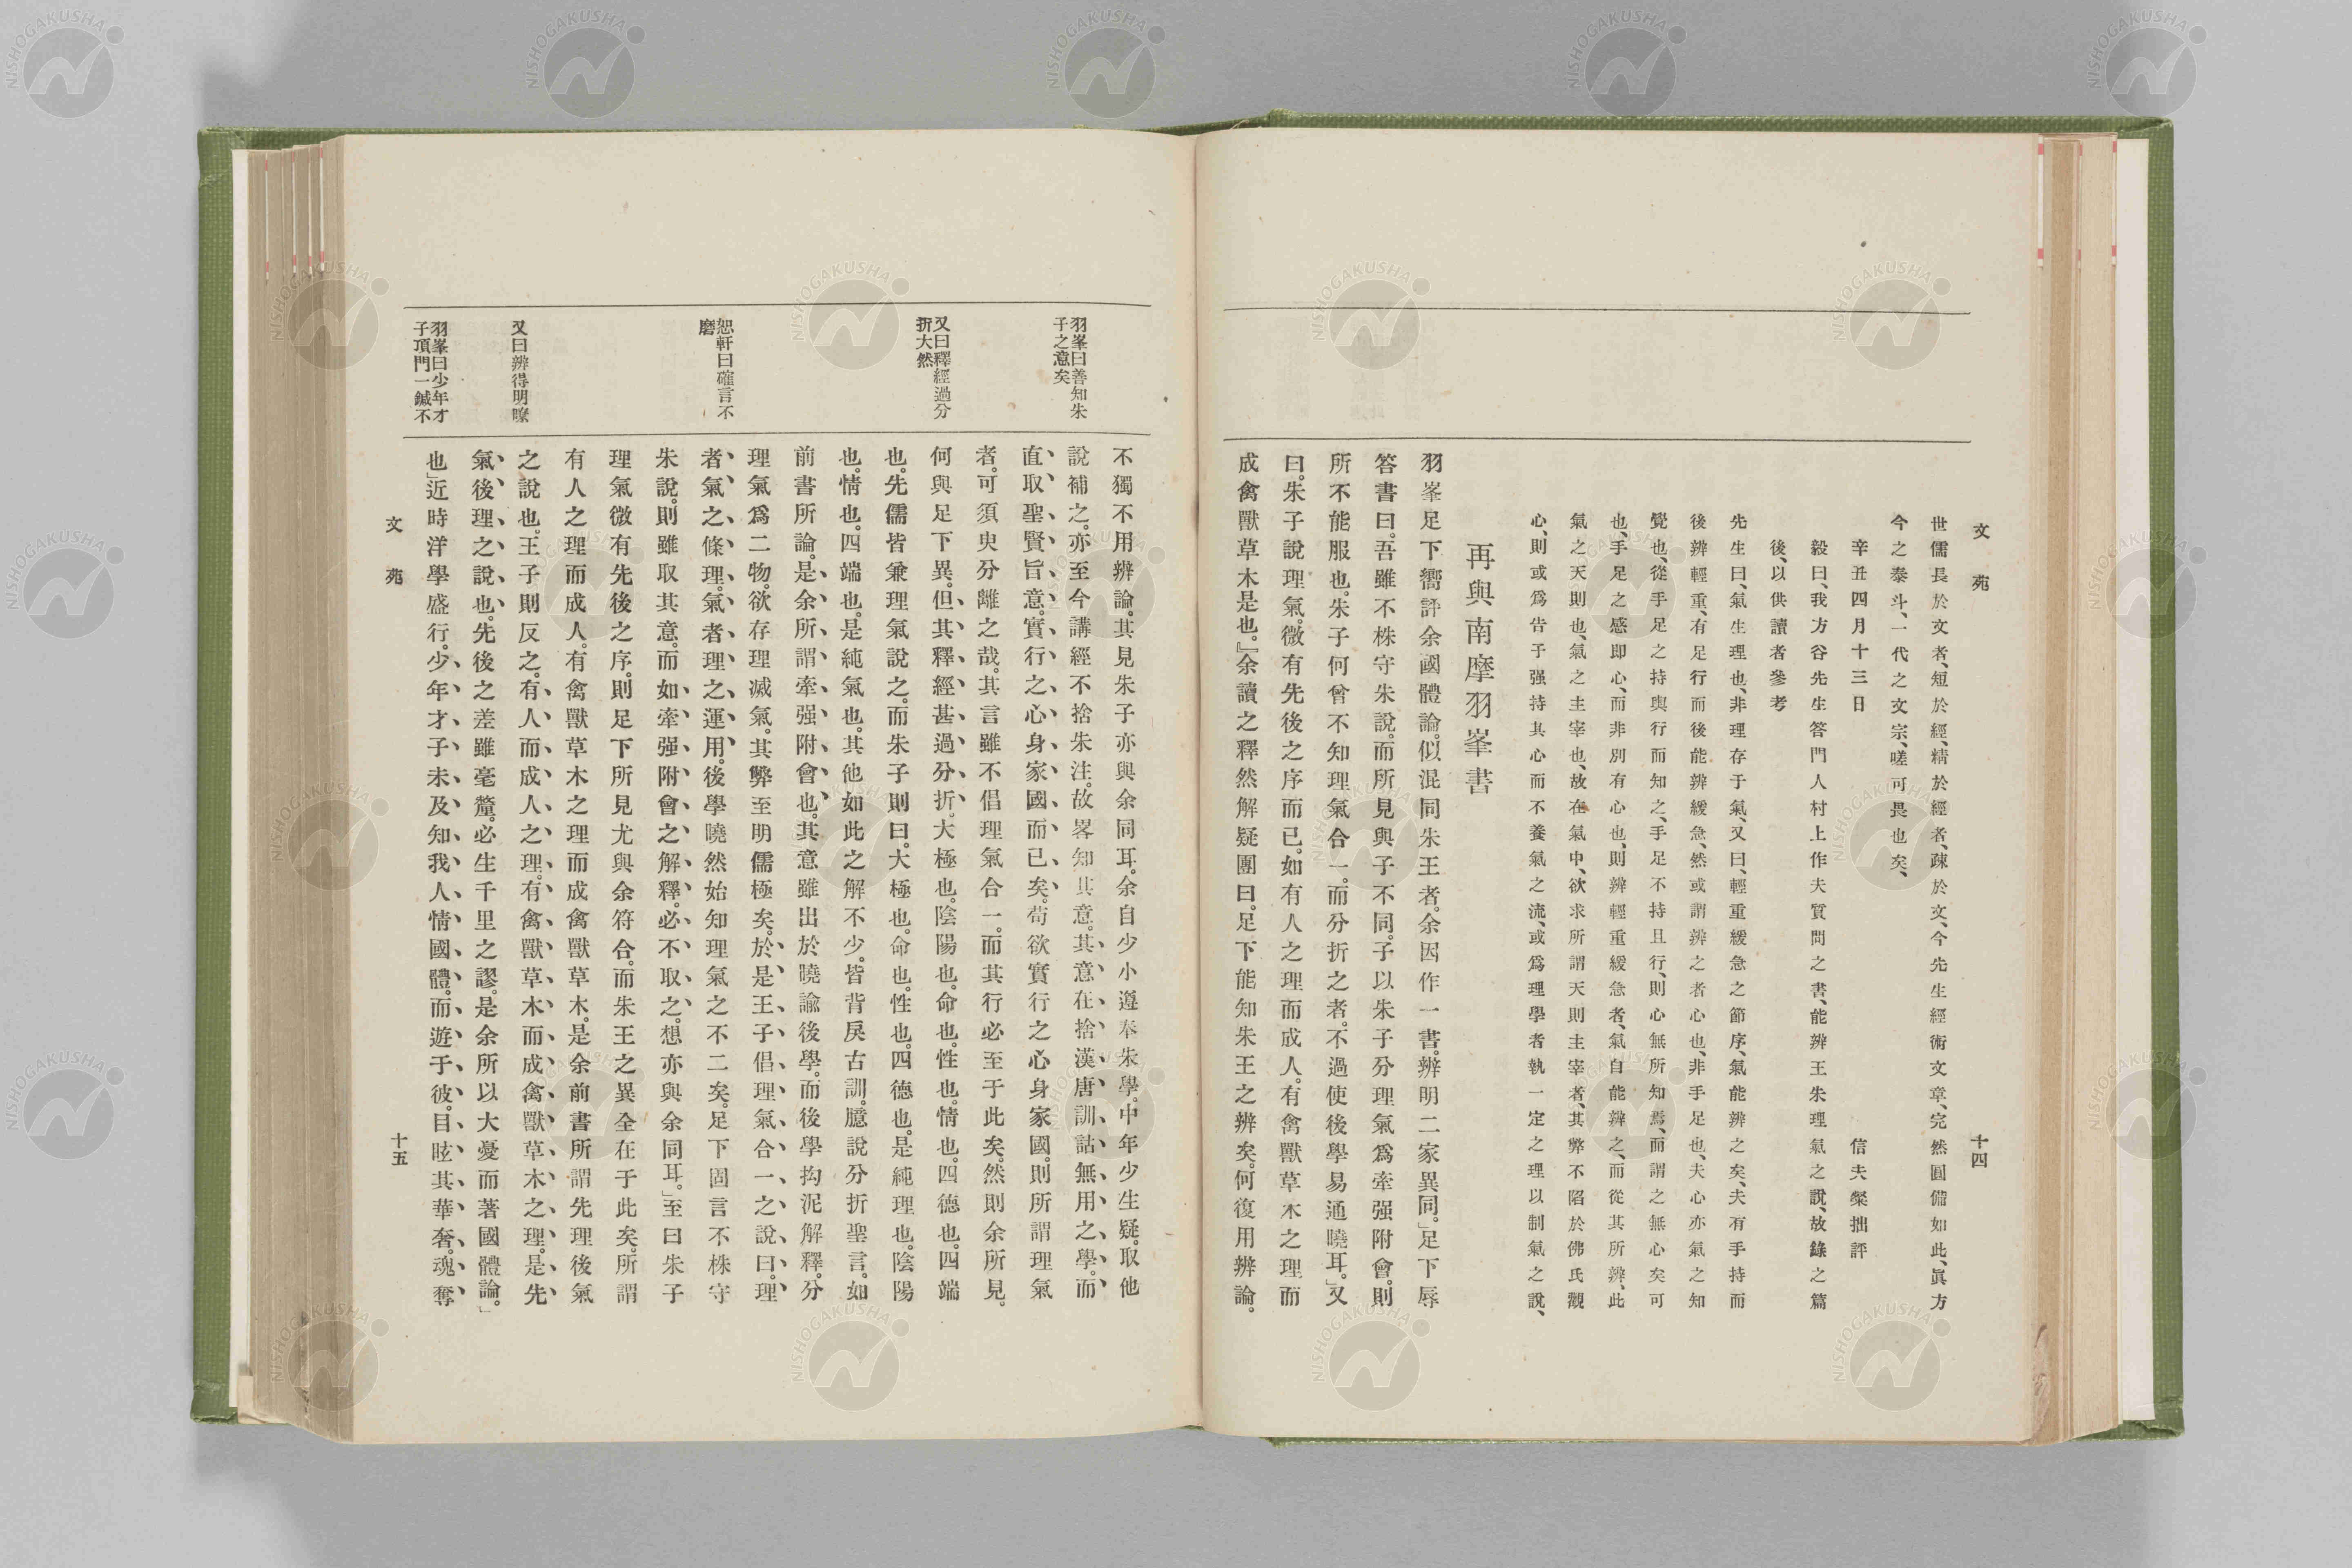 文苑
十四
世儒長於文者、短於經、精於經者、疎於文、今先生經術文章、完然圓備如此、眞方
今之泰斗、一代之文宗、嗟可畏也矣、
辛丑四月十三日
信夫粲拙評
毅曰、我方谷先生答門人村上作夫質問之書、能辨王朱理氣之說、故錄之篇
後、以供讀者參考
先生曰、氣生理也、非理存于氣、又曰、輕重緩急之節序、氣能辨之矣、夫有手持而
後辨輕重、有足行而後能辨緩急、然或謂辨之者心也、非手足也、夫心亦氣之知
覺也、從手足之持與行而知之、手足不持且行、則心無所知焉、而謂之無心矣可
也、手足之感即心、而非別有心也、則辨輕重緩急者、氣自能辨之、而從其所辨、此
氣之天則也、氣之主宰也、故在氣中、欲求所謂天則主宰者、其弊不陷於佛氏觀
心、則或爲告子强持其心而不養氣之流、或爲理學者執一定之理以制氣之說、
再與南摩羽峯書
羽峯足下嚮評余國體論。似混同朱王者。余因作一書。辨明二家異同。」足下辱
答書曰。吾雖不株守朱說。而所見與子不同。子以朱子分理氣爲牽强附會。則
所不能服也。朱子何曾不知理氣合一。而分折之者。不過使後學易通曉耳。」又
曰。朱子說理氣。微有先後之序而已。如有人之理而成人。有禽獸草木之理而
成禽獸草木是也。』余讀之釋然解疑團曰。足下能知朱王之辨矣。何復用辨論。
不獨不用辨論。其見朱子亦與余同耳。余自少小遵奉朱學。中年少生疑。取他
說補之。亦至今講經不捨朱注。故畧知其意。其意在捨漢唐訓詁無用之學。而
直取聖賢旨意。實行之心身家國而已矣。苟欲實行之心身家國。則所謂理氣
者。可須臾分離之哉。其言雖不倡理氣合一。而其行必至于此矣。然則余所見。
何與足下異。但其釋經甚過分折。大極也。陰陽也。命也。性也。情也。四德也。四端
也。先儒皆兼理氣說之。而朱子則曰。大極也。命也。性也。四德也。是純理也。陰陽
也。情也。四端也。是純氣也。其他如此之解不少。皆背戾古訓。臆說分折聖言。如
前書所論。是余所謂牽强附會也。其意雖出於曉諭後學。而後學拘泥解釋。分
理氣爲二物。欲存理滅氣。其弊至明儒極矣。於是王子倡理氣合一之說曰。理
者氣之條理。氣者理之運用。後學曉然始知理氣之不二矣。足下固言不株守
朱說。則雖取其意。而如牽强附會之解釋。必不取之。想亦與余同耳。」至曰朱子
理氣微有先後之序。則足下所見尤與余符合。而朱王之異全在于此矣。所謂
有人之理而成人。有禽獸草木之理而成禽獸草木。是余前書所謂先理後氣
之說也。王子則反之。有人而成人之理。有禽獸草木而成禽獸草木之理。是先
氣後理之說也。先後之差雖毫釐。必生千里之謬。是余所以大憂而著國體論。」
也」近時洋學盛行。少年才子未及知我人情國體。而遊于彼。目眩其華奢。魂奪
羽峯曰善知朱
子之意矣
又曰釋經過分
折大然
恕軒曰確言不
磨
又曰辨得明瞭
羽峯曰少年才
子頂門一鍼不
文苑
十五
NISHOGAKUSHA